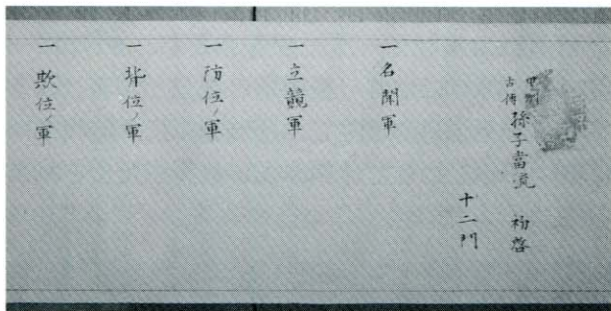 古傳 孫子當流 初啓
十二門
一 名聞軍
一 立競軍
一 防位ノ軍
一 位ノ軍
一 欺位ノ軍